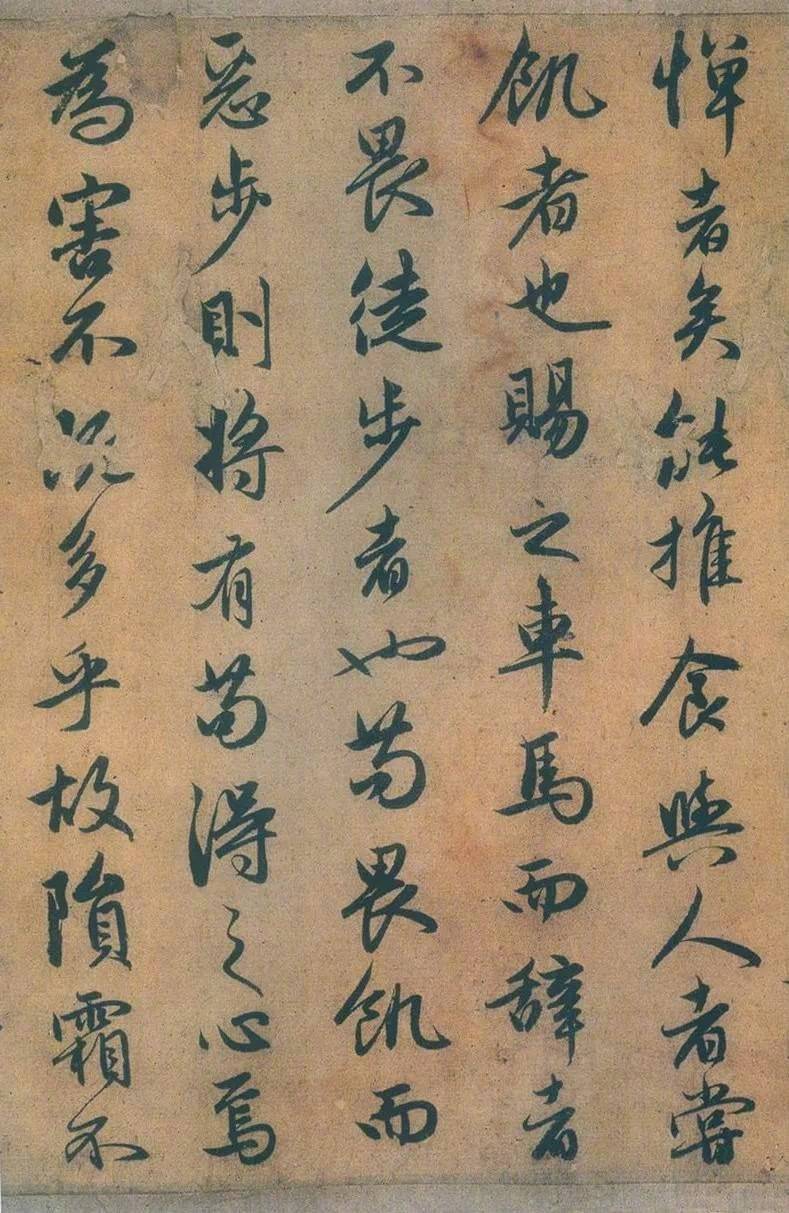 憚者矣能推食與人者嘗
飢者也賜之車馬而辭者
不畏徒步者也苟畏飢而
惡步則將有苟得之心焉
為害不況多乎故隕霜不